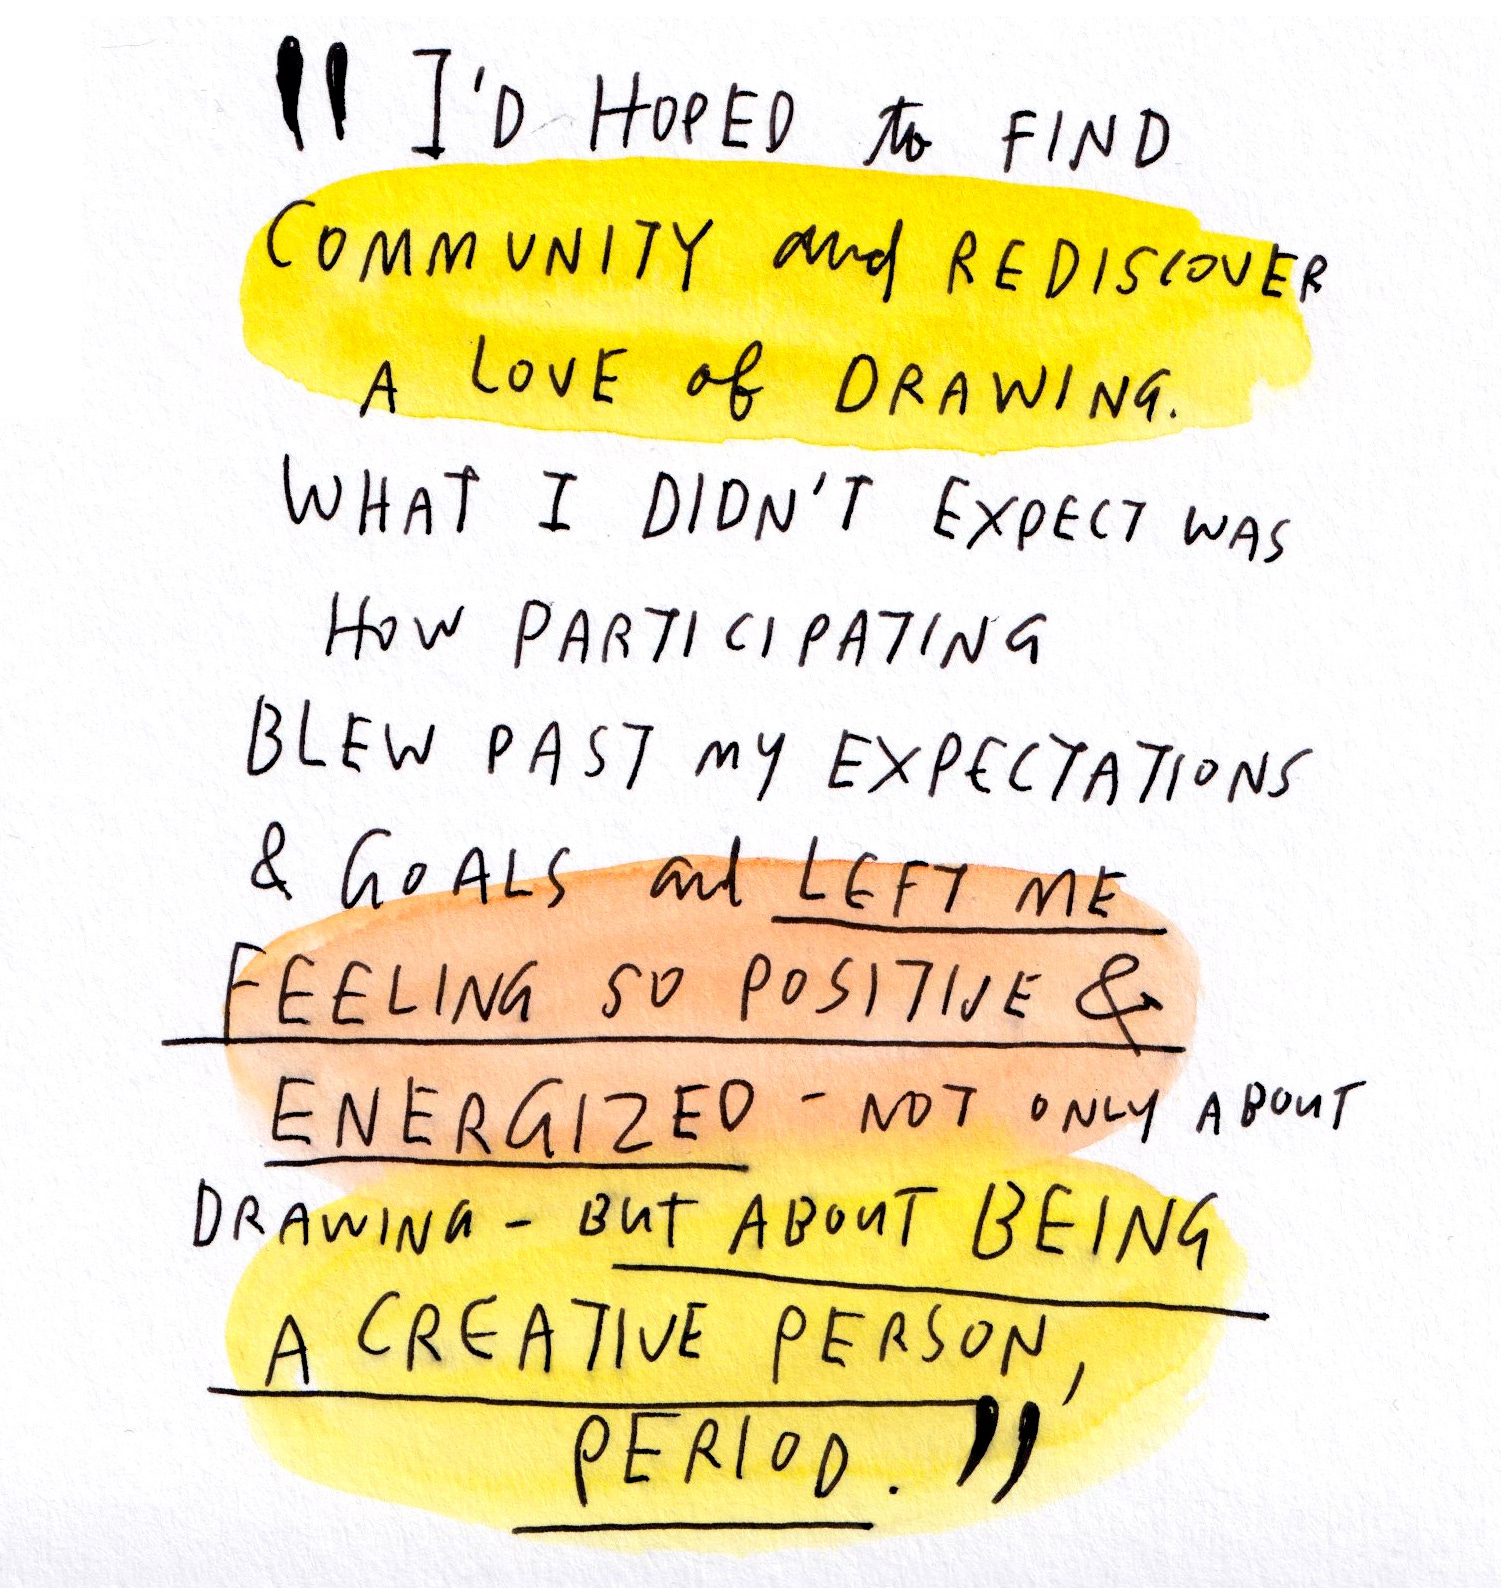 "I'D HOPED to FIND
COMMUNITY and REDISCOVER
A LOVE of DRAWING.
WHAT I DIDN'T EXPECT WAS
HOW PARTICIPATING
BLEW PAST MY EXPECTATIONS
& GOALS and LEFT ME
FEELING SO POSITIVE &
ENERGIZED - NOT ONLY ABOUT
DRAWING - BUT ABOUT BEING
A CREATIVE PERSON,
PERIOD."